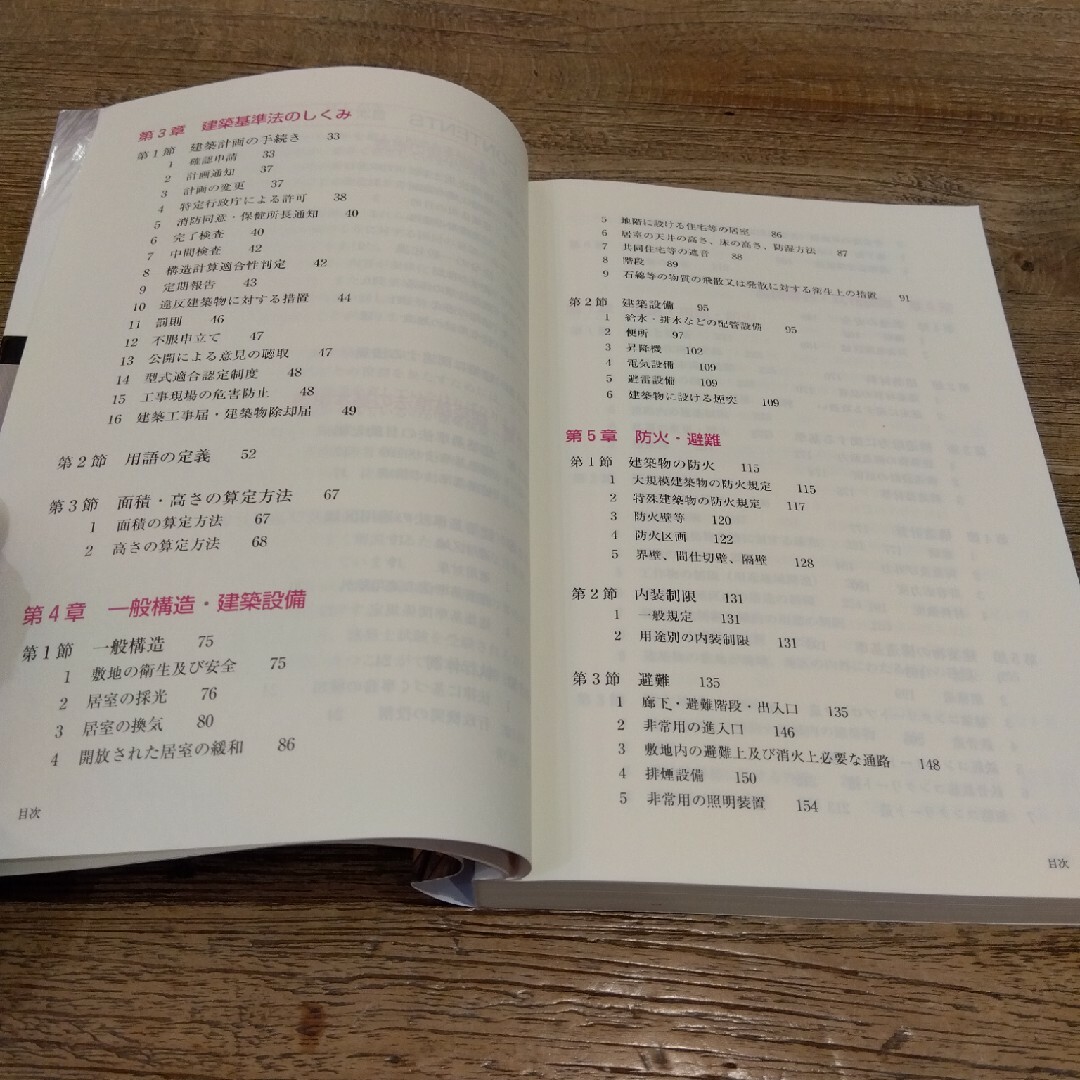 第3章 建築基準法のしくみ
第1節 建築計画の手続き 33
1 確認申請 33
2 計画通知 37
3 計画の変更 37
4 特定行政庁による許可 38
5 消防同意・保健所長通知 40
6 完了検査 40
7 中間検査 42
8 構造計算適合性判定 42
9 定期報告 43
10 違反建築物に対する措置 44
11 罰則 46
12 不服申立て 47
13 公開による意見の聴取 47
14 型式適合認定制度 48
15 工事現場の危害防止 48
16 建築工事届・建築物除却届 49
第2節 用語の定義 52
第3節 面積・高さの算定方法 67
1 面積の算定方法 67
2 高さの算定方法 68
第4章 一般構造・建築設備
第1節 一般構造 75
1 敷地の衛生及び安全 75
2 居室の採光 76
3 居室の換気 80
4 開放された居室の緩和 86
目次
5 地階に設ける住宅等の居室 86
6 居室の天井の高さ、床の高さ、防湿方法 87
7 共同住宅等の遮音 88
8 階段 89
9 石綿等の物質の飛散又は発散に対する衛生上の措置 91
第2節 建築設備 95
1 給水・排水などの配管設備 95
2 便所 97
3 昇降機 102
4 電気設備 109
5 避雷設備 109
6 建築物に設ける煙突 109
第5章 防火・避難
第1節 建築物の防火 115
1 大規模建築物の防火規定 115
2 特殊建築物の防火規定 117
3 防火壁等 120
4 防火区画 122
5 界壁、間仕切壁、隔壁 128
第2節 内装制限 131
1 一般規定 131
2 用途別の内装制限 131
第3節 避難 135
1 廊下・避難階段・出入口 135
2 非常用の進入口 146
3 敷地内の避難上及び消火上必要な通路 148
4 排煙設備 150
5 非常用の照明装置 154
目次